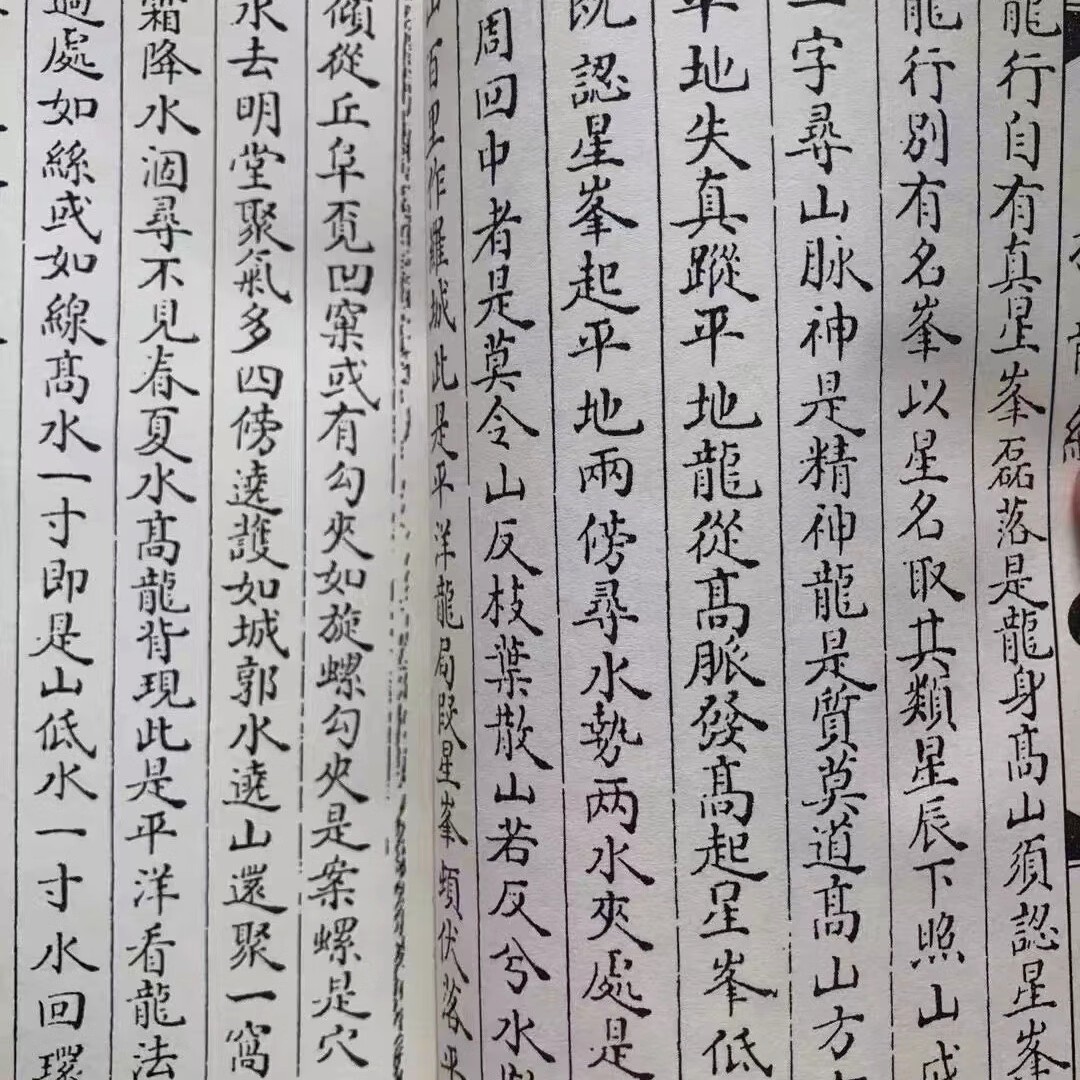 龍經
龍行自有真星峯磊落是龍身高山須認星峯
龍行別有名峯以星名取其類星辰下照山或
二字尋山脉神是精神龍是質莫道高山方
平地失真蹤平地龍從高脈發高起星峯低
既認星峯起平地兩傍尋水勢两水夾處是
周回中者是莫令山反枝葉散山若反兮水
山百里作羅城此是平洋龍局段星峯頓伏落平
傾從丘阜覔凹窠或有勾夾如旋螺勾夾是案螺是穴
水去明堂聚氣多四傍遶護如城郭水遶山還聚一窩
霜降水涸尋不見春夏水高龍背現此是平洋看龍法
過處如絲或如線高水一寸即是山低水一寸水回環